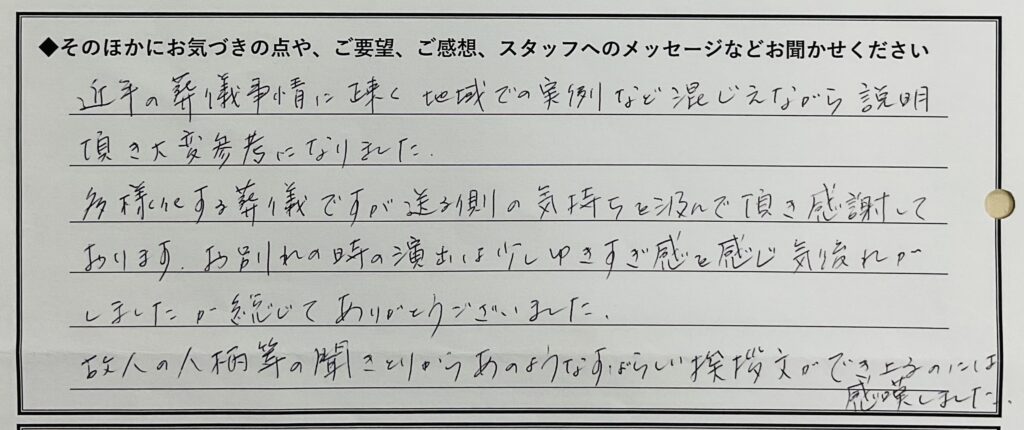 ◆そのほかにお気づきの点や、ご要望、ご感想、スタッフへのメッセージなどお聞かせください
近年の葬儀事情に疎く地域での実例など混じえながら説明
頂き大変参考になりました.
多様化する葬儀ですが送る側の気持ちを汲んで頂き感謝して
おります. お別れの時の演出は少しゆきすぎ感を感じ気後れが
しましたが総じてありがとうございました.
故人の人柄等の聞きとりからあのようなすばらしい挨拶文ができ上るのには
感嘆しました.